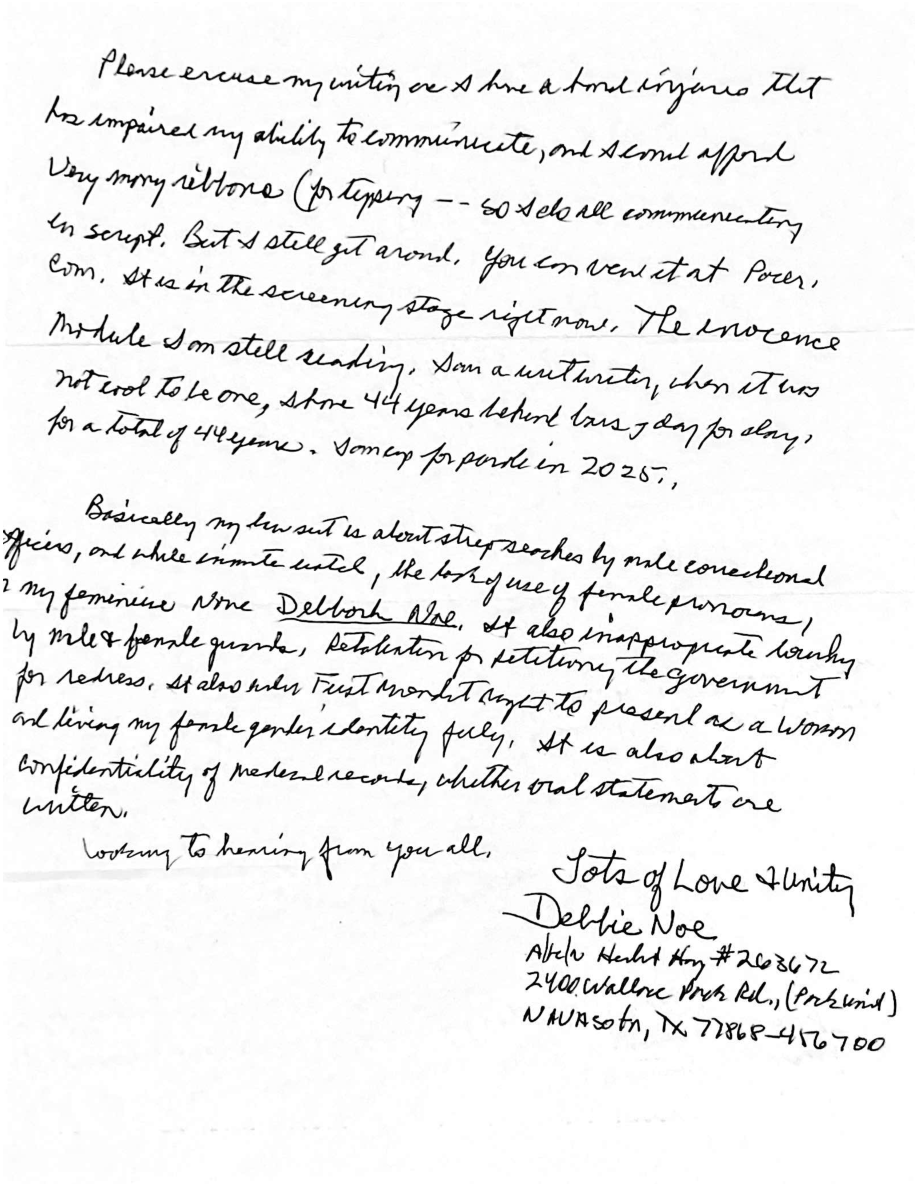 Please excuse my writing as I have a hand injures that
has impaired my ability to communicate, and I cannot afford
very many ribbons (for typing -- so I do all communicating
in script. But I still get around. You can view it at Pacer.
Com. It is in the screening stage right now. The inocence
Module I am still reading. I am a writ writer, when it was
not cool to be one, I have 44 years behind bars, day for day,
for a total of 44 years. I am up for parole in 2025.,
Basically my lawsuit is about strip seaches by male correctional
officers, and while inmate watch, the lack of use of female pronouns,
my feminine name Debborah Noe. It also inappropriate touching
by male & female guards, Retaliation for petitioning the government
for redress. It also under First Amendment right to present as a woman
and living my female gender identity fully. It is also about
confidentiality of medical records, whether oral statements are
written.
Looking to hearing from you all.
Lots of Love & Unity
Debbie Noe
#263672
2400 Wallace Pack Rd., (Pack Unit)
NAVAsota, TX 77868-456700